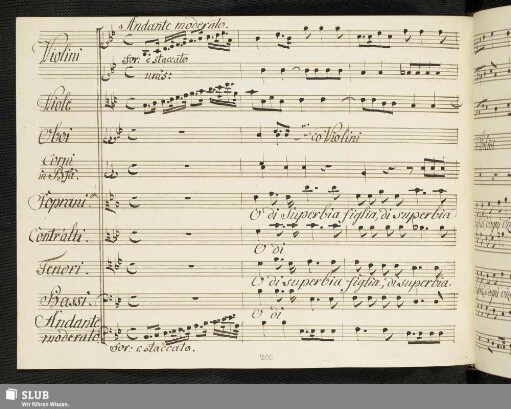 Andante moderato.
Violini
For: e staccato
unis:
Viole
Oboi
co Violini
Corni
in Bfa
Soprani
O di Superbia figlia, di superbia
Contralti.
O di
Tenori.
O di superbia figlia, di superbia
Bassi.
O di
Andante
moderato
For: e staccato.
200
SLUB
Wir führen Wissen.